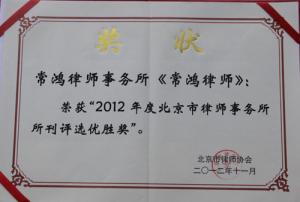 奖状
常鸿律师事务所《常鸿律师》：
荣获“2012年度北京市律师事务所
所刊评选优胜奖”。
北京市律师协会
二〇一二年十一月